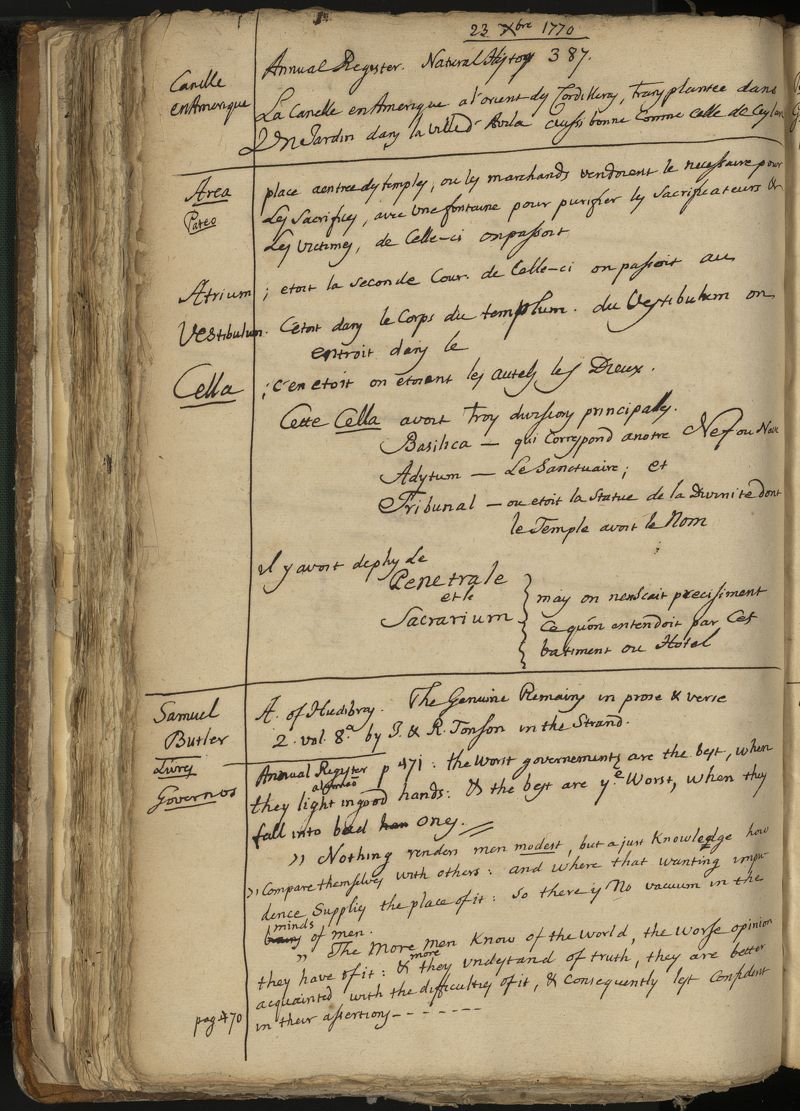 23 Xbre 1770
Canelle
en Amerique
Annual Regester. Natural History 387.
La Canelle en Amerique a l'orient des Cordilleras, transplantée dans
Un Jardin dans la ville d'Avila aussi bonne comme celle de Ceylan
Area
Pateo
place a entree des temples, ou les marchands vendoient le necessaire pour
Les Sacrifices, avec une fontaine pour purifier les Sacrificateurs &
Les victimes, de Celle-ci on passoit
Atrium ; etoit la seconde Cour. de Celle-ci on passoit au
Vestibulum. C'etoit dans le Corps du templum. du Vestibulum on
entroit dans le
Cella ; c'en etoit on etoient les autels les Dieux.
Cette Cella avoit troys divisions principalles.
Basilica — qui Correspond a notre Nef ou Nave
Adytum — Le Sanctuaire; et
Tribunal — ou etoit la statue de la Divinité dont
le Temple avoit le Nom
il y avoit de plus Le
Penetrale
et le
Sacrarium
mays on ne scait precisiment
Ce qu'on entendoit par Cet
batiment ou Hotel
Samuel
Butler
Livres
A. of Hudibras. The Genuine Remains in prose & verse
2. vol. 8.º by J. & R. Tonson in the Strand.
Governos
Annual Register p 471: the worst governements are the best, when
they light in good hands: & the best are ye Worst, when they
fall into bad han ones.
" Nothing renders men modest, but a just Knowledge how
" Compare themselves with others: and where that wanting impu-
dence Supplies the place of it: So there is No vacuum in the
minds
of men.
" The More men Know of the World, the Worse opinion
they have of it: & more they understand of truth, they are better
acquainted with the difficulties of it, & Consequently less Confident
in their assertions - - - - - - -
pag 470